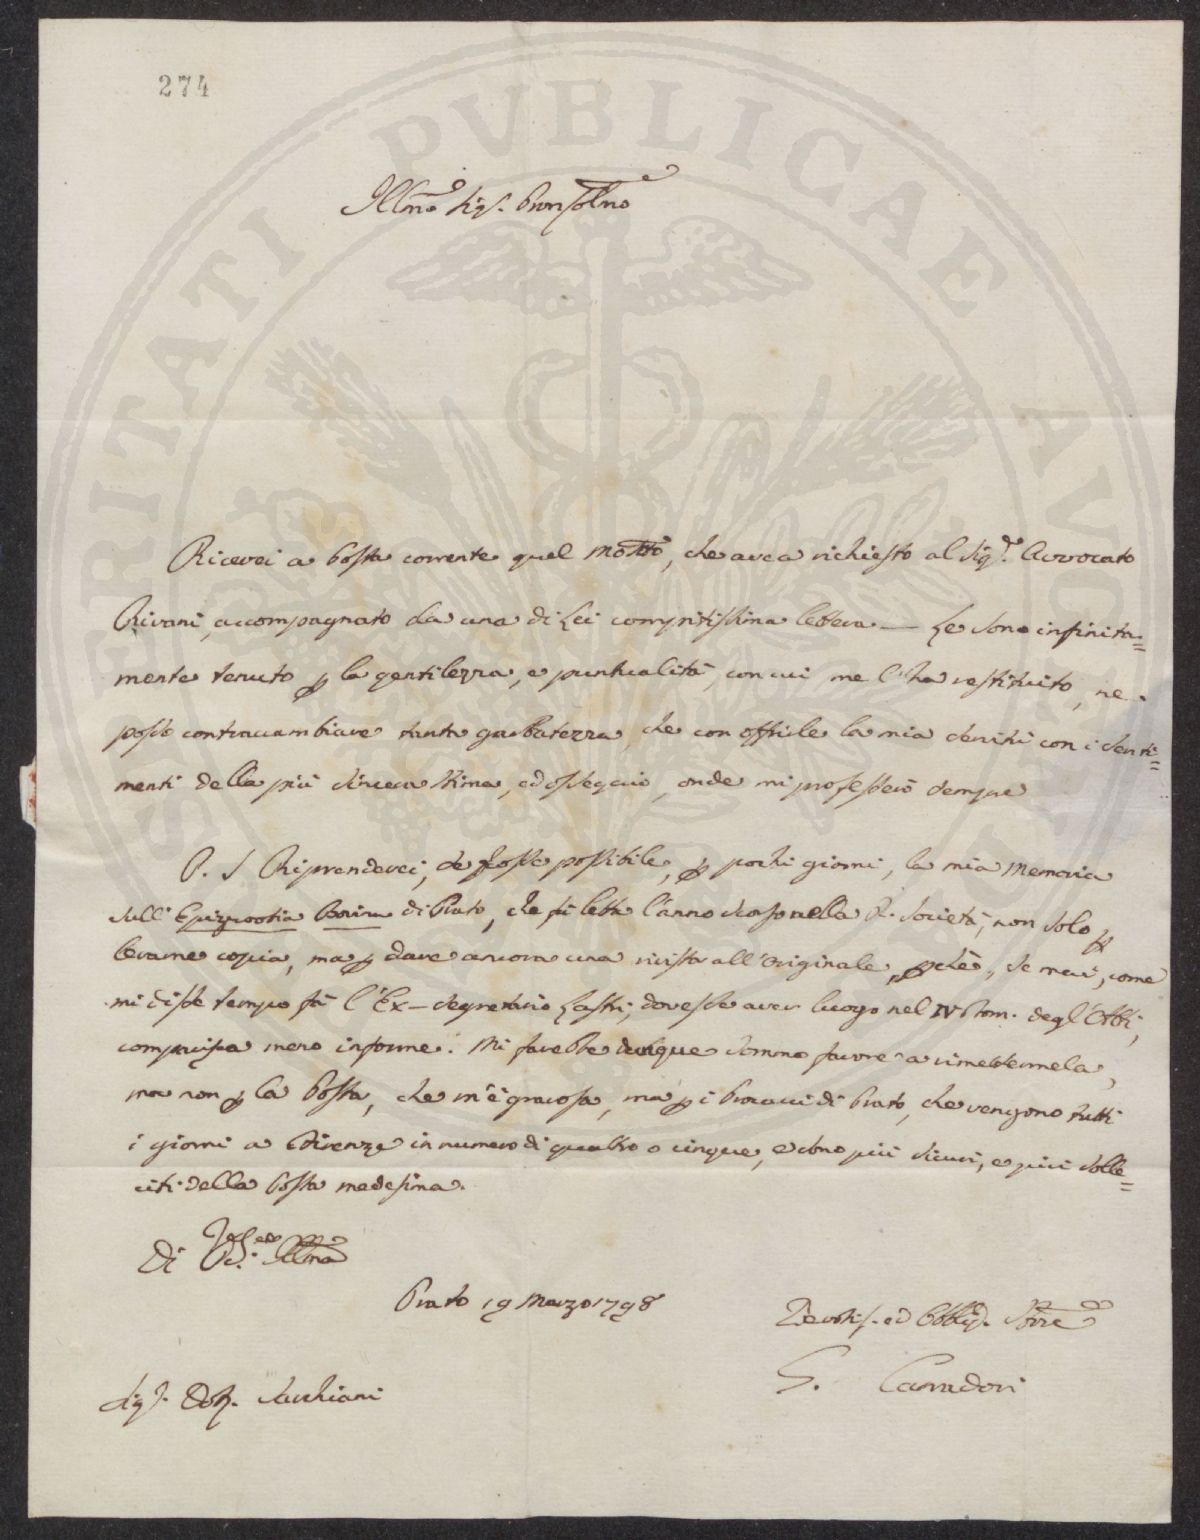 274
PROSPERITATI PVBLICAE AVGENDAE
Illmo Sigr. Pron Colmo
Ricevei a Posta corrente quel Mostto, che avea richiesto al Sigr. Avvocato
Rivani, accompagnato da una di Lei compitissima lettera — Le sono infinita=
mente tenuto p la gentilezza, e puntualità, con cui me l'ha restituito, ne
posso contraccambiare tanta garbatezza, che con offrirle la mia servitù con i senti=
menti della più sincera stima, ed ossequio, onde mi professerò sempre
P. S Riprenderei, se fosse possibile, p pochi giorni, la mia Memoria
sull' Epizootia Bovina di Prato, che fù letta l'anno scorso nella R. Società, non solo p
levarne copia, ma p dare ancora una rivista all'originale, pchè, se mai, come
mi disse tempo fà l'Ex-Segretario Lastri, dovesse aver luogo nel IV Tom. degl'Atti,
comparisca meno informe. Mi farebbe dunque sommo favore a rimettermela,
ma non p la Posta, che m'è gravosa, ma p i Procacci di Prato, che vengono tutti
i giorni a Firenze in numero di quattro o cinque, e sono più sicuri, e più solle=
citi della Posta medesima.
Di VS. Illma
Prato 19 Marzo 1798
Devotis. ed Obblig. Serre
G. Carradori
Sigr. Dott. Sarchiani